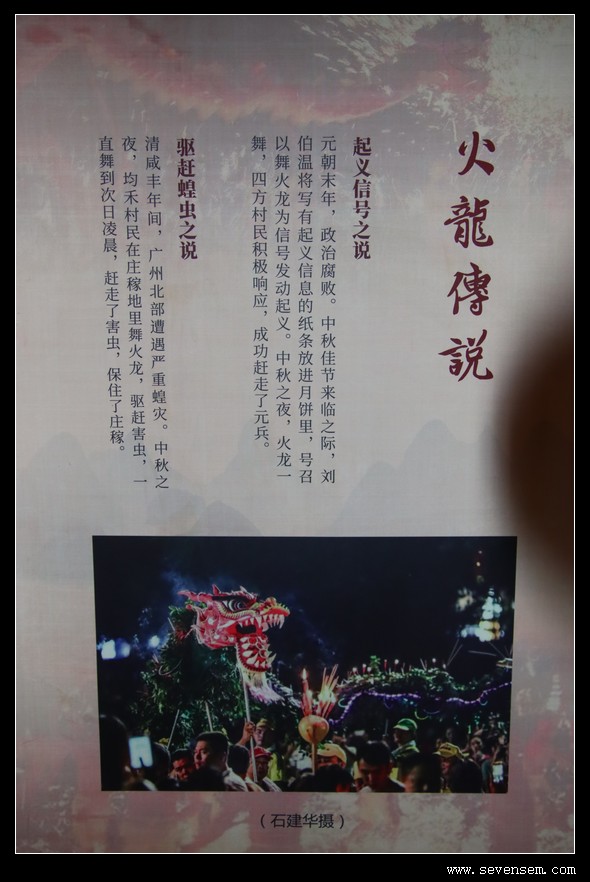 火龍傳説
起义信号之说
元朝末年，政治腐败。中秋佳节来临之际，刘
伯温将写有起义信息的纸条放进月饼里，号召
以舞火龙为信号发动起义。中秋之夜，火龙一
舞，四方村民积极响应，成功赶走了元兵。
驱赶蝗虫之说
清咸丰年间，广州北部遭遇严重蝗灾。中秋之
夜，均禾村民在庄稼地里舞火龙，驱赶害虫，一
直舞到次日凌晨，赶走了害虫，保住了庄稼。
（石建华摄）
www.sevensem.com